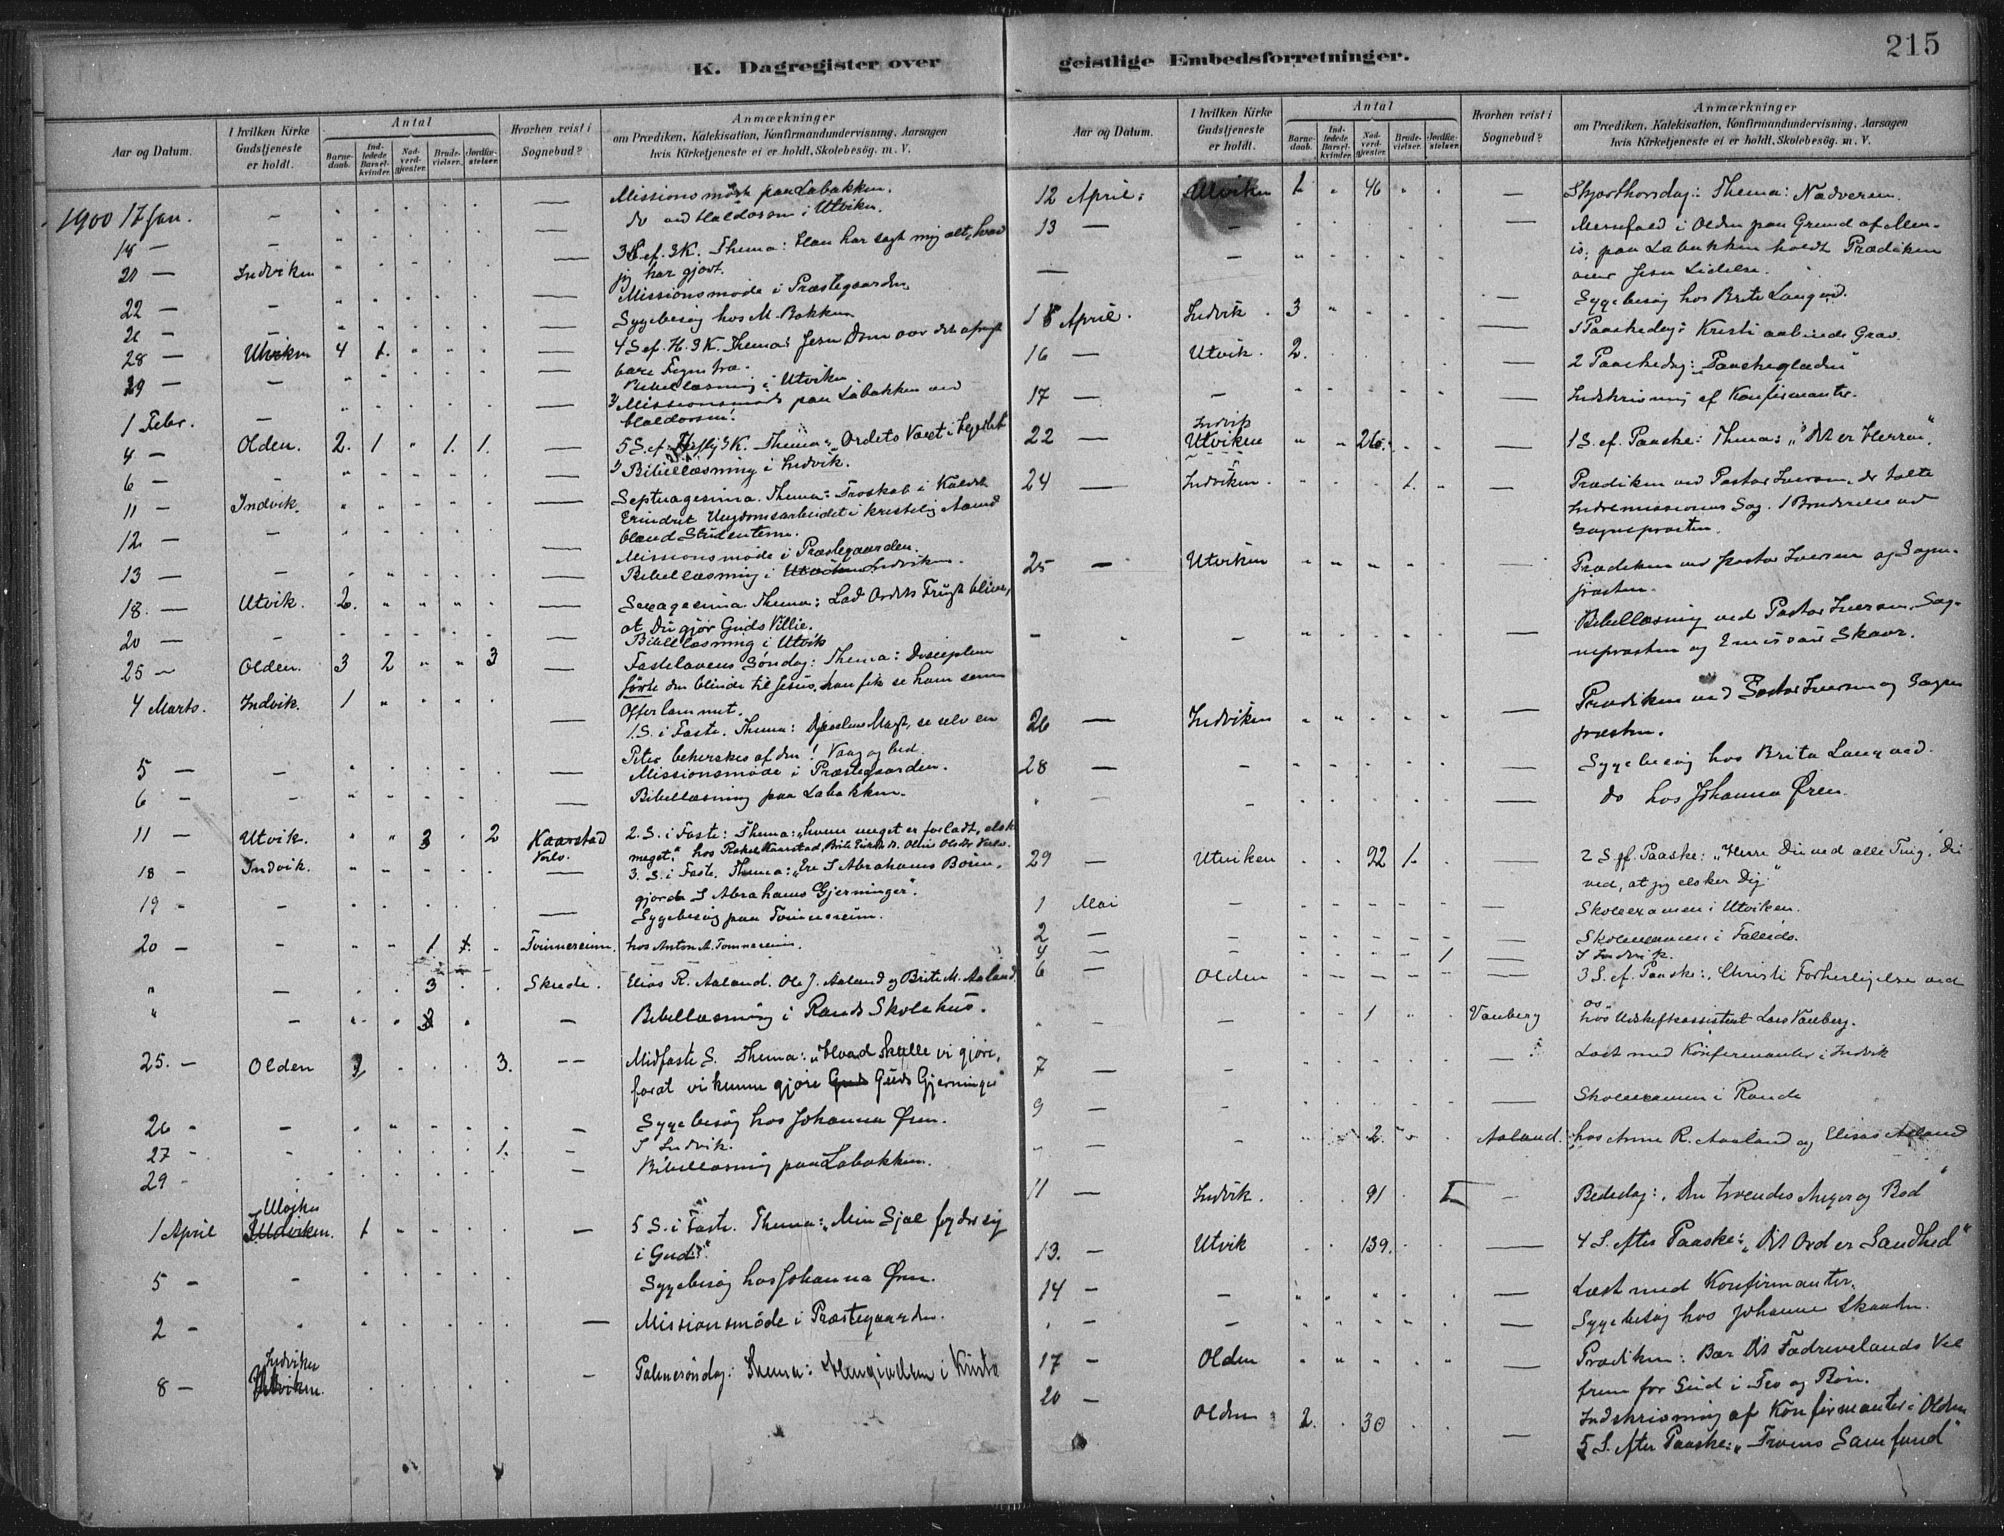 215
K. Dagregister over
Aar og Datum.
I hvilken Kirke Gudstjeneste er holdt.
Antal
Barnedaab.
Indledede Barselkvinder.
Nadverdgjester.
Brudevielser.
Jordfæstelser.
Hvorhen reist i Sognebud?
Anmærkninger
om Prædiken, Katekisation, Konfirmandundervisning, Aarsagen
hvis Kirketjeneste ei er holdt, Skolebesøg m. V.
Missionsmøde paa Labakken.
1900 17 Jan. — — do ved Haldorsen i Utviken.
18 — — 3 S. ef. 3 K. Thema: Han har sagt mig alt, hvad
21 — Indviken — jeg har gjort.
Missionsmøde i Præstegaarden
22 — — — Sygebesøg hos M. Bakken
26 — —
28 — Utviken 4 1. — 4 S. ef. H. 3 K. Thema: Jesu Dom over det ufrugt
bare Figentræ.
29 — — — Bibellæsning i Utviken
Missionsmøde paa Labakken ved
1 Febr. — — Haldorsen.
4 — Olden. 2. 1 1. 1. — 5 S. ef. H 3 K. Thema: Ordets Væxt i
6 — — Bibellæsning i Indvik.
11 — Indvik. — Septuagesima. Thema: Troskab i Kaldet.
Erindret Ungdomsarbeidet i kristelig Aand
12 — — — bland Studenterne.
Missionsmøde i Præstegaarden.
13 — — — Bibellæsning i Utviken Indviken.
18. — Utvik. 2. — Sexagesima. Thema: Lad Ordets Frugt blive,
at Du gjør Guds Villie.
20 — — — Bibellæsning i Utvik
25 — Olden. 3 2 3 — Fastelavens Søndag: Thema: Disciplene
førte den blinde til Jesus, han fik se ham som
4 Marts. Indvik. 1 Offerlammet.
— 1. S. i Faste. Thema: Djævelens Magt, se selv en
Peter beherskes af den! Vaag og bed.
5 — — — Missionsmøde i Præstegaarden.
6 — — — Bibellæsning paa Labakken.
11 — Utvik. 3 2 Kaarstad 2. S. i Faste: Thema: „hvem meget er forladt, elsk
meget." hos Rakel Kaarstad,
18 — Indvik. — 3. S. i Faste. Thema: „Ere I Abrahams Børn,
gjorde I Abrahams Gjerninger".
19 — — — Sygebesøg paa Tvinnereim.
20 — — 1 1. Tvinnereim. hos Anton A. Tvinnereim.
" — 3 Skrede. Elias R. Aaland. Ole J. Aaland og Brite M. Aaland.
" — — Bibellæsning i Rands Skolehus.
25. — Olden 3. — Midfaste S. Thema: „Hvad skulle vi gjøre,
forat vi kunne gjøre Guds Guds Gjerninger"
26 — — — Sygebesøg hos Johanna Øren.
27 — 1. I Indvik.
29 — Bibellæsning paa Labakken.
Utviken
1 April Indviken. 1 — 5 S. i Faste. Thema: „Min Sjæl fryder sig
i Gud".
5 — — Sygebesøg hos Johanna Øren.
2 — — Missionsmøde i Præstegaarden.
Indviken
8 — Utviken. Palmesøndag: Thema: Hengivelsen i Kristo
geistlige Embedsforretninger.
Aar og Datum.
I hvilken Kirke Gudstjeneste er holdt.
Antal
Barnedaab.
Indledede Barselkvinder.
Nadverdgjester.
Brudevielser.
Jordfæstelser.
Hvorhen reist i Sognebud?
Anmærkninger
om Prædiken, Katekisation, Konfirmandundervisning, Aarsagen
hvis Kirketjeneste ei er holdt, Skolebesøg m. V.
12 April: Utviken 1 46 — Skjærthorsdag: Thema: Nadveren.
13 — — Messefald i Olden paa Grund af Men-
is; paa Labakken holdt Prædiken
— — over Jesu Lidelse.
Sygebesøg hos Brite Langved.
15 April. Indvik 3 — 1 Paaskedag: Kristi aabnede Grav.
16 — Utvik. 2. — 2 Paaskedag: „Paaskeglæden"
17 — — — Indskrivning af Konfirmanter.
Indvik
22 — Utviken 26. — 1 S. ef. Paaske: Thema: „Det er Herren".
24 — Indviken. 1. — Prædiken ved Pastor Iversen, der talte
Indremissionens Sag. 1 Brudevielse ved
Sognepræsten.
25 — Utviken — Prædiken ved Pastor Iversen og Sogne-
præsten.
— — — Bibellæsning ved Pastor Iversen, Sog-
nepræsten og Emissair Skaar.
26 — Indviken — Prædiken ved Pastor Iversen og Sogne
præsten.
28 — — — Sygebesøg hos Brita Langved.
" — — do hos Johanna Øren.
29 — Utviken 92 1. — 2 S. ef. Paaske: „Herre Du ved alle Ting, Du
ved, at jeg elsker Dig"
1 Mai — — Skoleexamen i Utviken.
2 — — — Skoleexamen i
4 — — 1 — I Indvik.
6 — Olden — 3 S. ef. Paaske: Christi Forherligelse ved
os.
— 1 Vanberg hos Udskiftsassistent Lars Vanberg.
7 — — — Læst med Konfirmanter i Indvik
9 — — — Skoleexamen i Rande
— 2. Aaland. hos Anne R. Aaland og Elias Aaland
11 — Indvik. 91 — Bededag: „Den troendes Anger og Bod"
13. — Utvik 139. — 4 S. efter Paaske: „Dit Ord er Sandhed"
14 — — — Læst med Konfirmanter.
— — Sygebesøg hos Johanne
17 — Olden — Prædiken: Bær Dit Fædrenelands Vel
frem for Gud i Tro og Bøn.
20 — Olden 2. 30 Indskrivning af Konfirmanter i Olden
— 5 S. efter Paaske: „Troens Samfund"